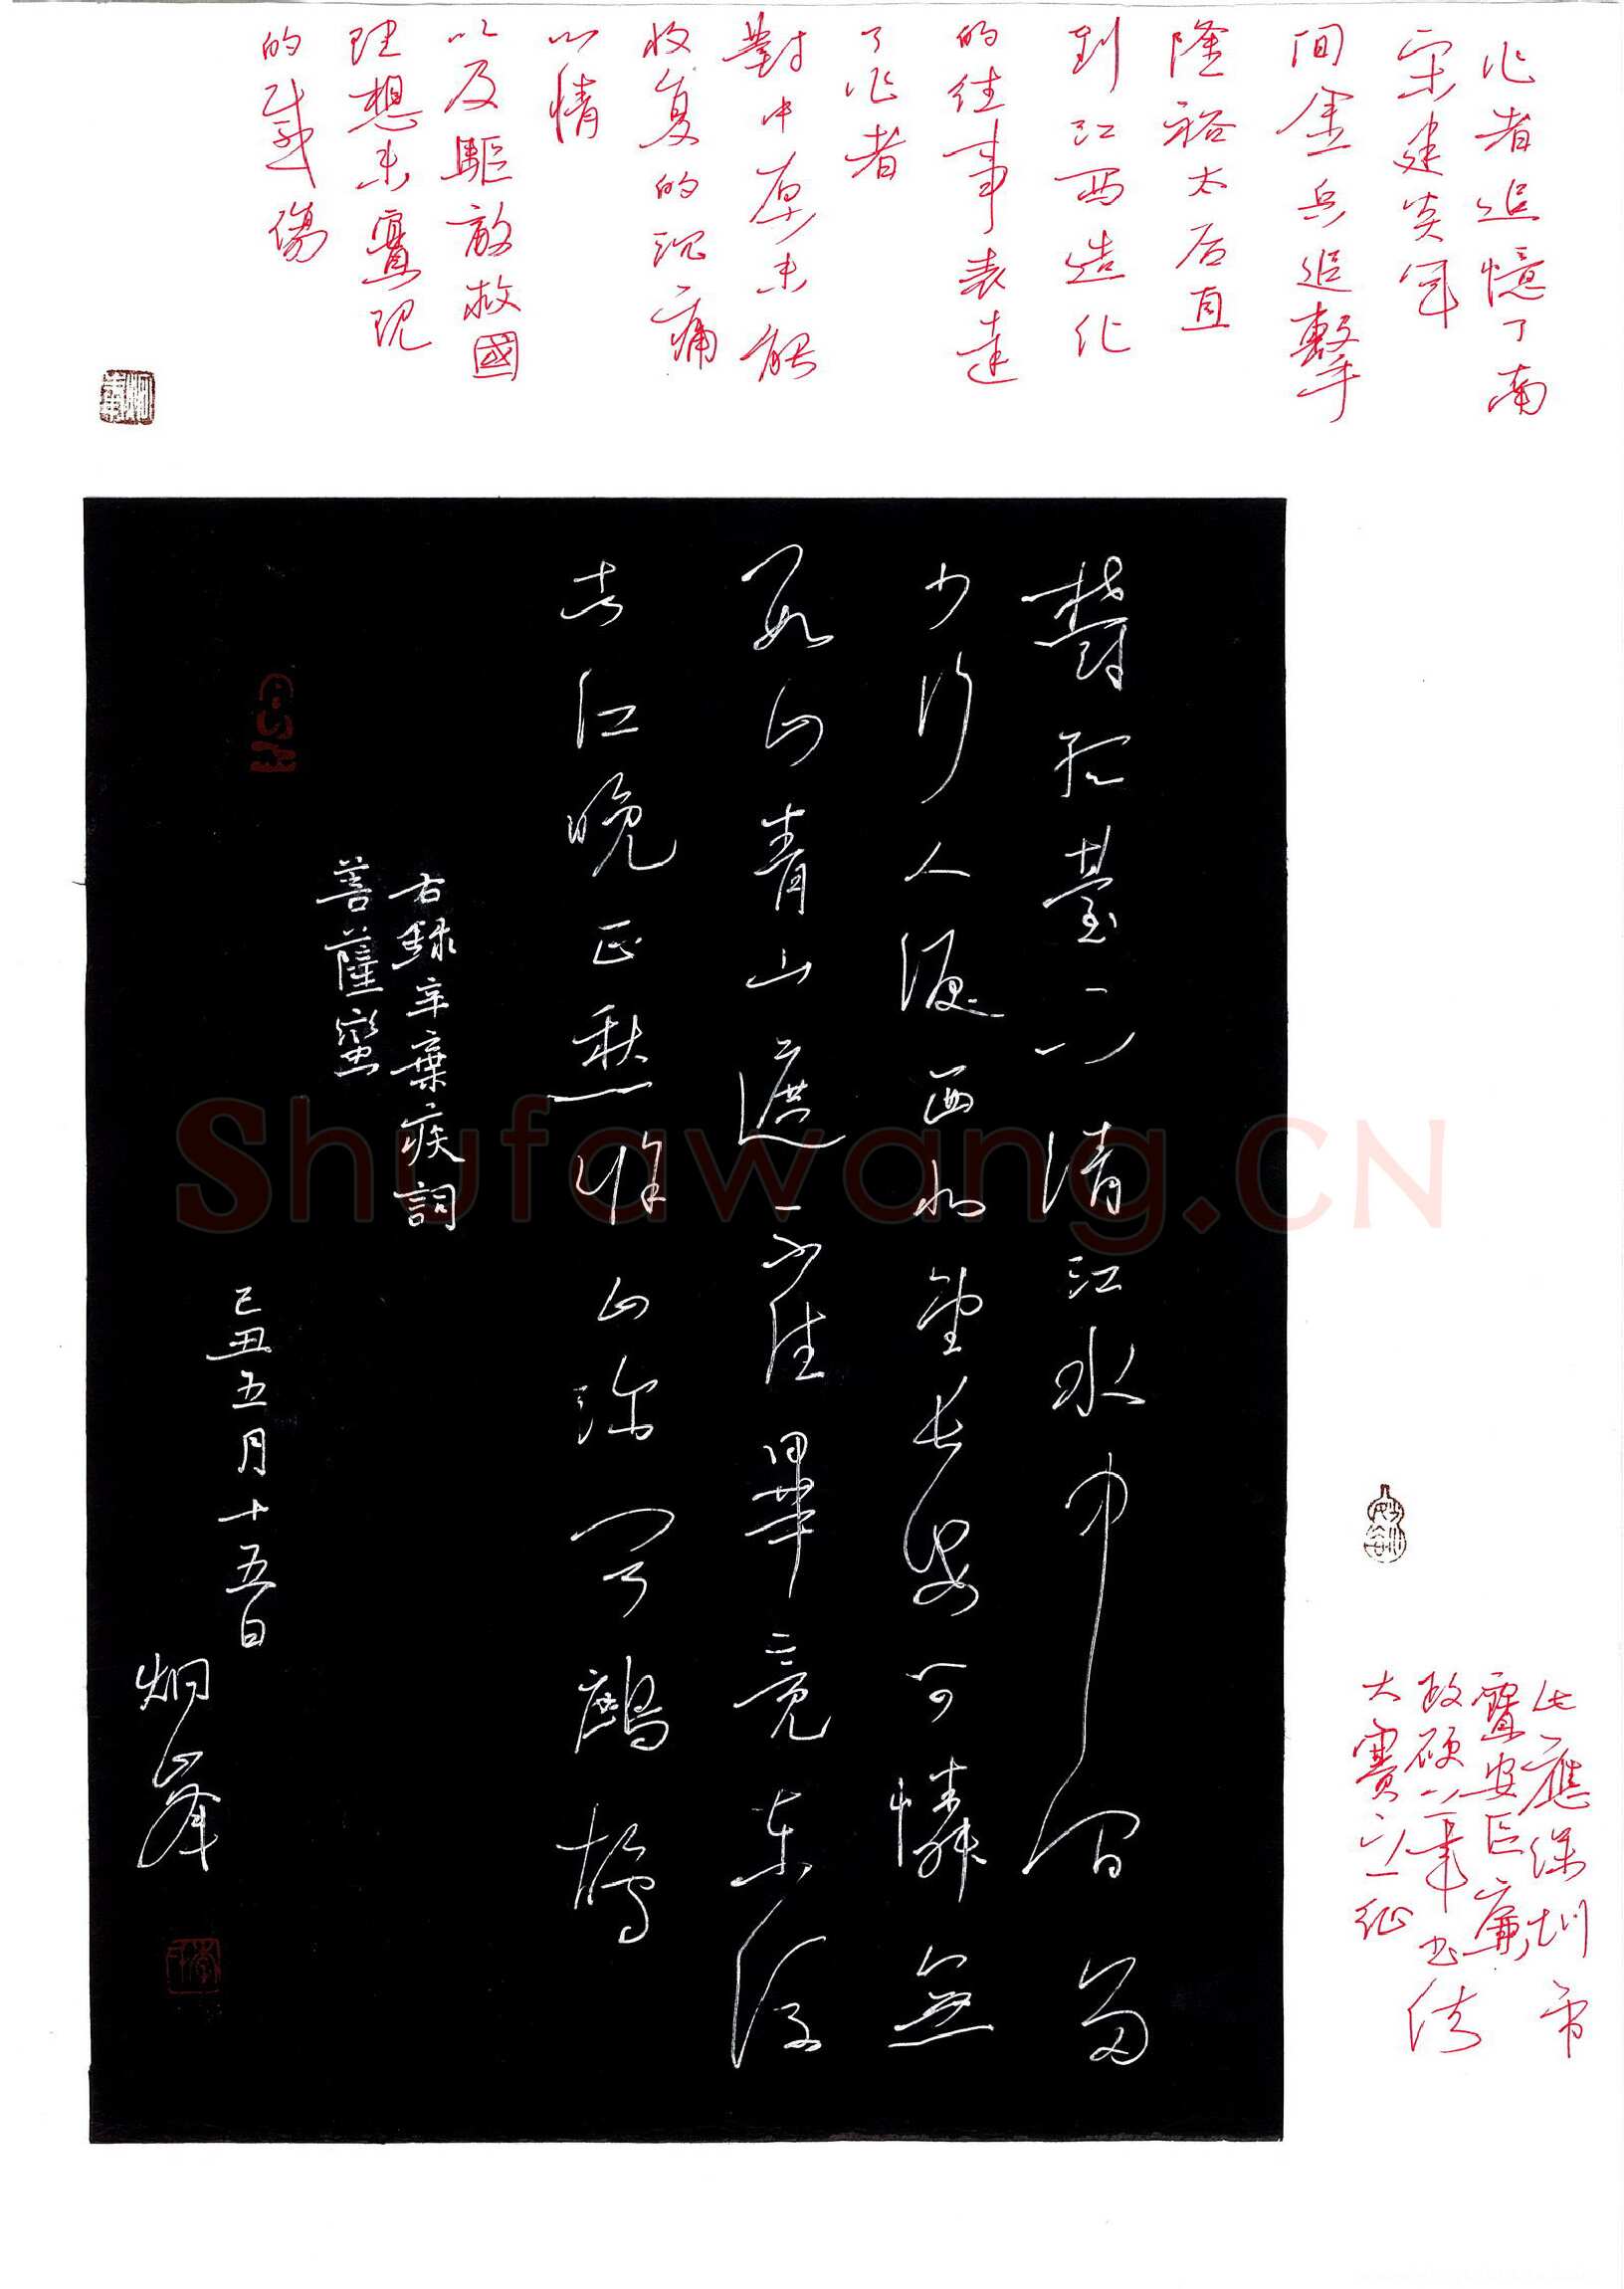 作者追憶了南
宋建炎年
间金兵追擊
隆裕太后直
到江西造化
的往事表達
了作者
對中原未能
收复的沉痛
心情
以及驅敵救國
理想未實現
的感傷
鬱孤臺下清江水中间多
少行人淚西北望長安可憐無
數山青山遮不住畢竟東流
去江晚正愁余山深聞鷓鴣
右錄辛棄疾詞
菩薩蠻
己丑五月十五日
炯峰
此應深圳市
寶安区廉
政硬筆书法
大賽之征
Shufawang.CN